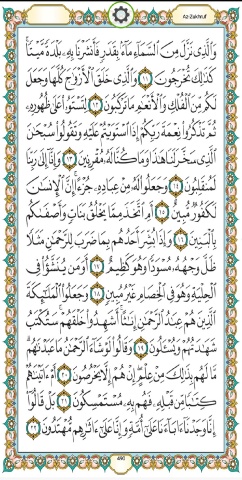 Az-Zukhruf
وَالَّذِي نَزَّلَ مِنَ السَّمَاءِ مَاءً بِقَدَرٍ فَأَنشَرْنَا بِهِ بَلْدَةً مَّيْتًا
كَذَٰلِكَ تُخْرَجُونَ ١١ وَالَّذِي خَلَقَ الْأَزْوَاجَ كُلَّهَا وَجَعَلَ
لَكُم مِّنَ الْفُلْكِ وَالْأَنْعَامِ مَا تَرْكَبُونَ ١٢ لِتَسْتَوُوا عَلَىٰ ظُهُورِهِ
ثُمَّ تَذْكُرُوا نِعْمَةَ رَبِّكُمْ إِذَا اسْتَوَيْتُمْ عَلَيْهِ وَتَقُولُوا سُبْحَانَ
الَّذِي سَخَّرَ لَنَا هَٰذَا وَمَا كُنَّا لَهُ مُقْرِنِينَ ١٣ وَإِنَّا إِلَىٰ رَبِّنَا
لَمُنقَلِبُونَ ١٤ وَجَعَلُوا لَهُ مِنْ عِبَادِهِ جُزْءًا إِنَّ الْإِنسَانَ
لَكَفُورٌ مُّبِينٌ ١٥ أَمِ اتَّخَذَ مِمَّا يَخْلُقُ بَنَاتٍ وَأَصْفَاكُم
بِالْبَنِينَ ١٦ وَإِذَا بُشِّرَ أَحَدُهُم بِمَا ضَرَبَ لِلرَّحْمَٰنِ مَثَلًا
ظَلَّ وَجْهُهُ مُسْوَدًّا وَهُوَ كَظِيمٌ ١٧ أَوَمَن يُنَشَّأُ فِي
الْحِلْيَةِ وَهُوَ فِي الْخِصَامِ غَيْرُ مُبِينٍ ١٨ وَجَعَلُوا الْمَلَائِكَةَ
الَّذِينَ هُمْ عِبَادُ الرَّحْمَٰنِ إِنَاثًا أَشَهِدُوا خَلْقَهُمْ سَتُكْتَبُ
شَهَادَتُهُمْ وَيُسْأَلُونَ ١٩ وَقَالُوا لَوْ شَاءَ الرَّحْمَٰنُ مَا عَبَدْنَاهُم
مَّا لَهُم بِذَٰلِكَ مِنْ عِلْمٍ إِنْ هُمْ إِلَّا يَخْرُصُونَ ٢٠ أَمْ آتَيْنَاهُمْ
كِتَابًا مِّن قَبْلِهِ فَهُم بِهِ مُسْتَمْسِكُونَ ٢١ بَلْ قَالُوا
إِنَّا وَجَدْنَا آبَاءَنَا عَلَىٰ أُمَّةٍ وَإِنَّا عَلَىٰ آثَارِهِم مُّهْتَدُونَ ٢٢
490